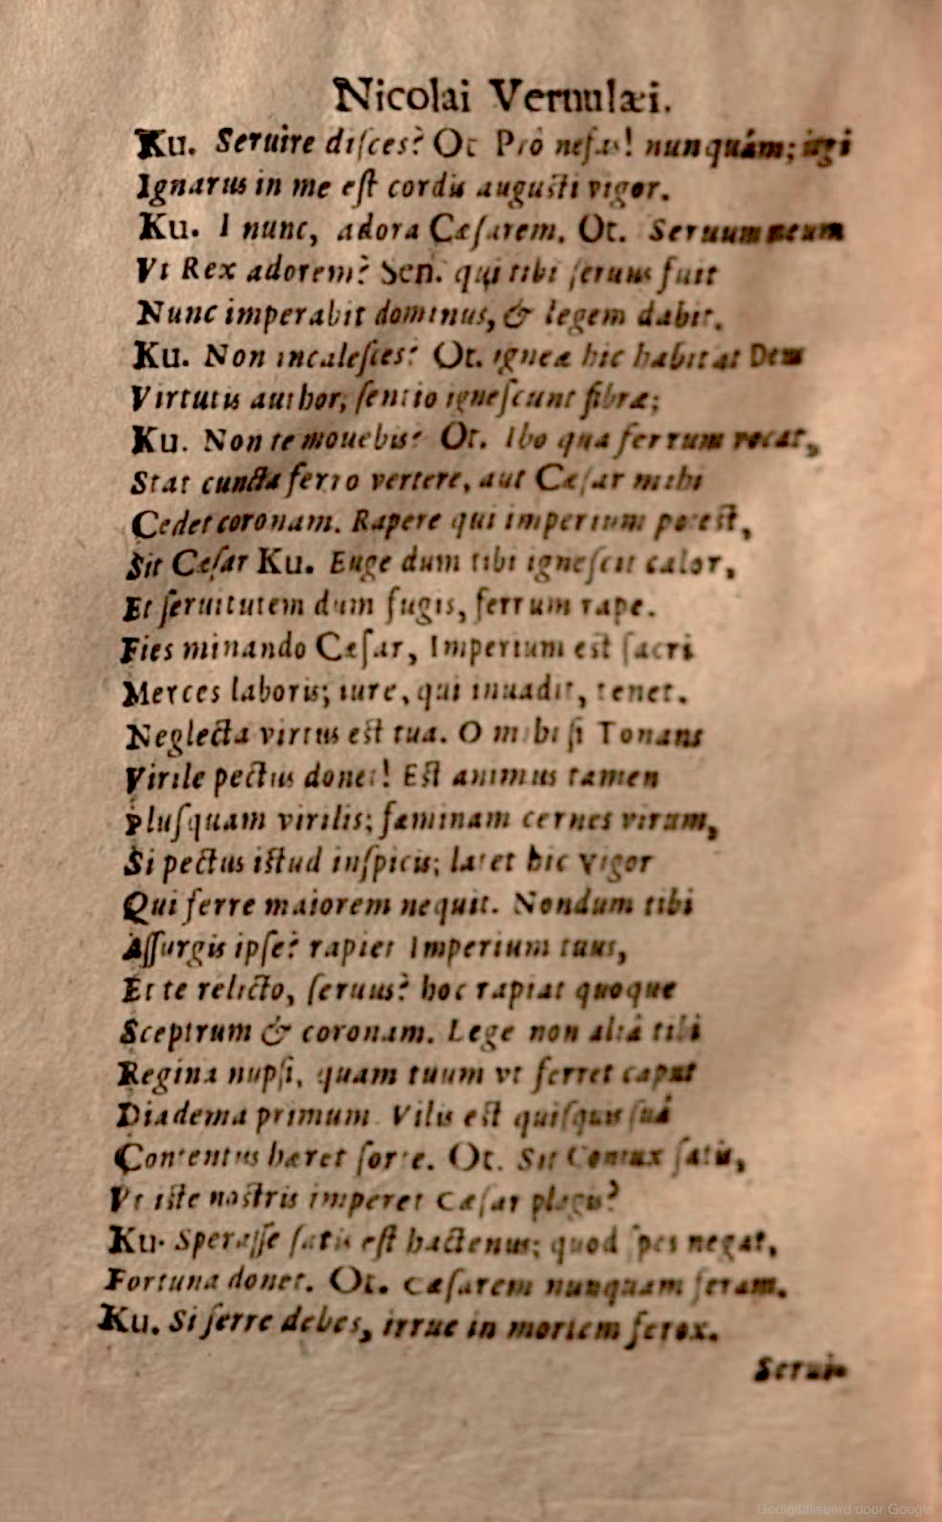 Nicolai Vernulæi.
Ku. Seruire disces? Ot Prò nefas! nunquàm; iugi
Ignarus in me est cordis augusti vigor.
Ku. I nunc, adora Cæsarem. Ot. Seruum meum
Vt Rex adorem? Sen. qui tibi seruus fuit
Nunc imperabit dominus, & legem dabit.
Ku. Non incalescies? Ot. ignea hic habitat Deus
Virtutis author, sentio ignescunt fibræ;
Ku. Non te mouebis? Ot. Ibo qua ferrum vocat,
Stat cuncta ferro vertere, aut Cæsar mihi
Cedet coronam. Rapere qui imperium potest,
Sit Cæsar Ku. Euge dum tibi ignescit calor,
Et seruitutem dum fugis, ferrum rape.
Fies minando Cæsar, Imperium est sacri
Merces laboris; iure, qui inuadit, tenet.
Neglecta virtus est tua. O mihi si Tonans
Virile pectus donet! Est animus tamen
Plusquam virilis; fæminam cernes virum,
Si pectus istud inspicis; latet hic vigor
Qui ferre maiorem nequit. Nondum tibi
Assurgis ipse? rapiet Imperium tuus,
Et te relicto, seruus? hoc rapiat quoque
Sceptrum & coronam. Lege non aliâ tibi
Regina nupsi, quam tuum vt ferret caput
Diadema primum Vilis est quisquis suâ
Contentus hæret sorte. Ot. Sit Coniux satis,
Vt iste nostris imperet Cæsar plagis?
Ku. Sperasse satis est hactenus; quod spes negat,
Fortuna donet. Ot. Cæsarem nunquam feram.
Ku. Si ferre debes, irrue in mortem ferox.
Serui-